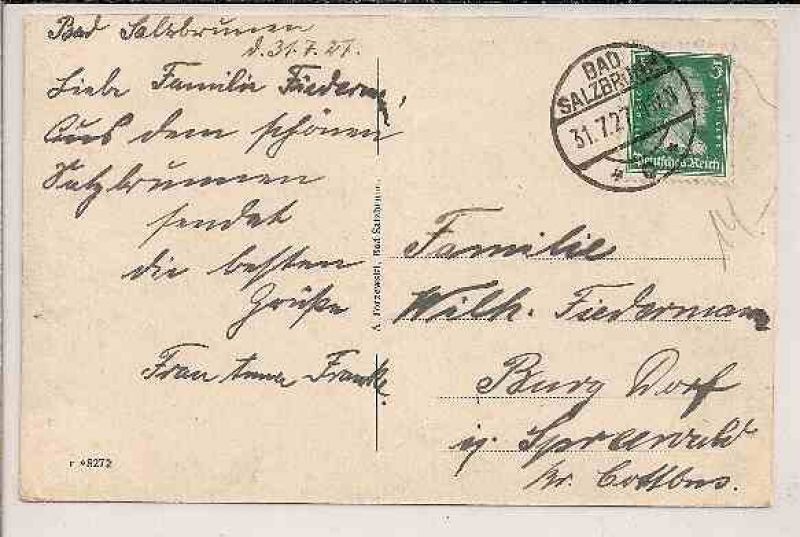 Bad Salzbrunnen
d. 31.7.27.
Liebe Familie Fiedermann!
Aus dem schönen
Salzbrunnen
sendet
die besten
Grüße
Frau Anna Franke.
r 08272
A. Forzewski, Bad Salzbrunn.
BAD
SALZBRUNN
31.7.27
5
Deutsches Reich
Familie
Wilh. Fiedermann
Burg Dorf
i/. Spreewald
Kr. Cottbus.